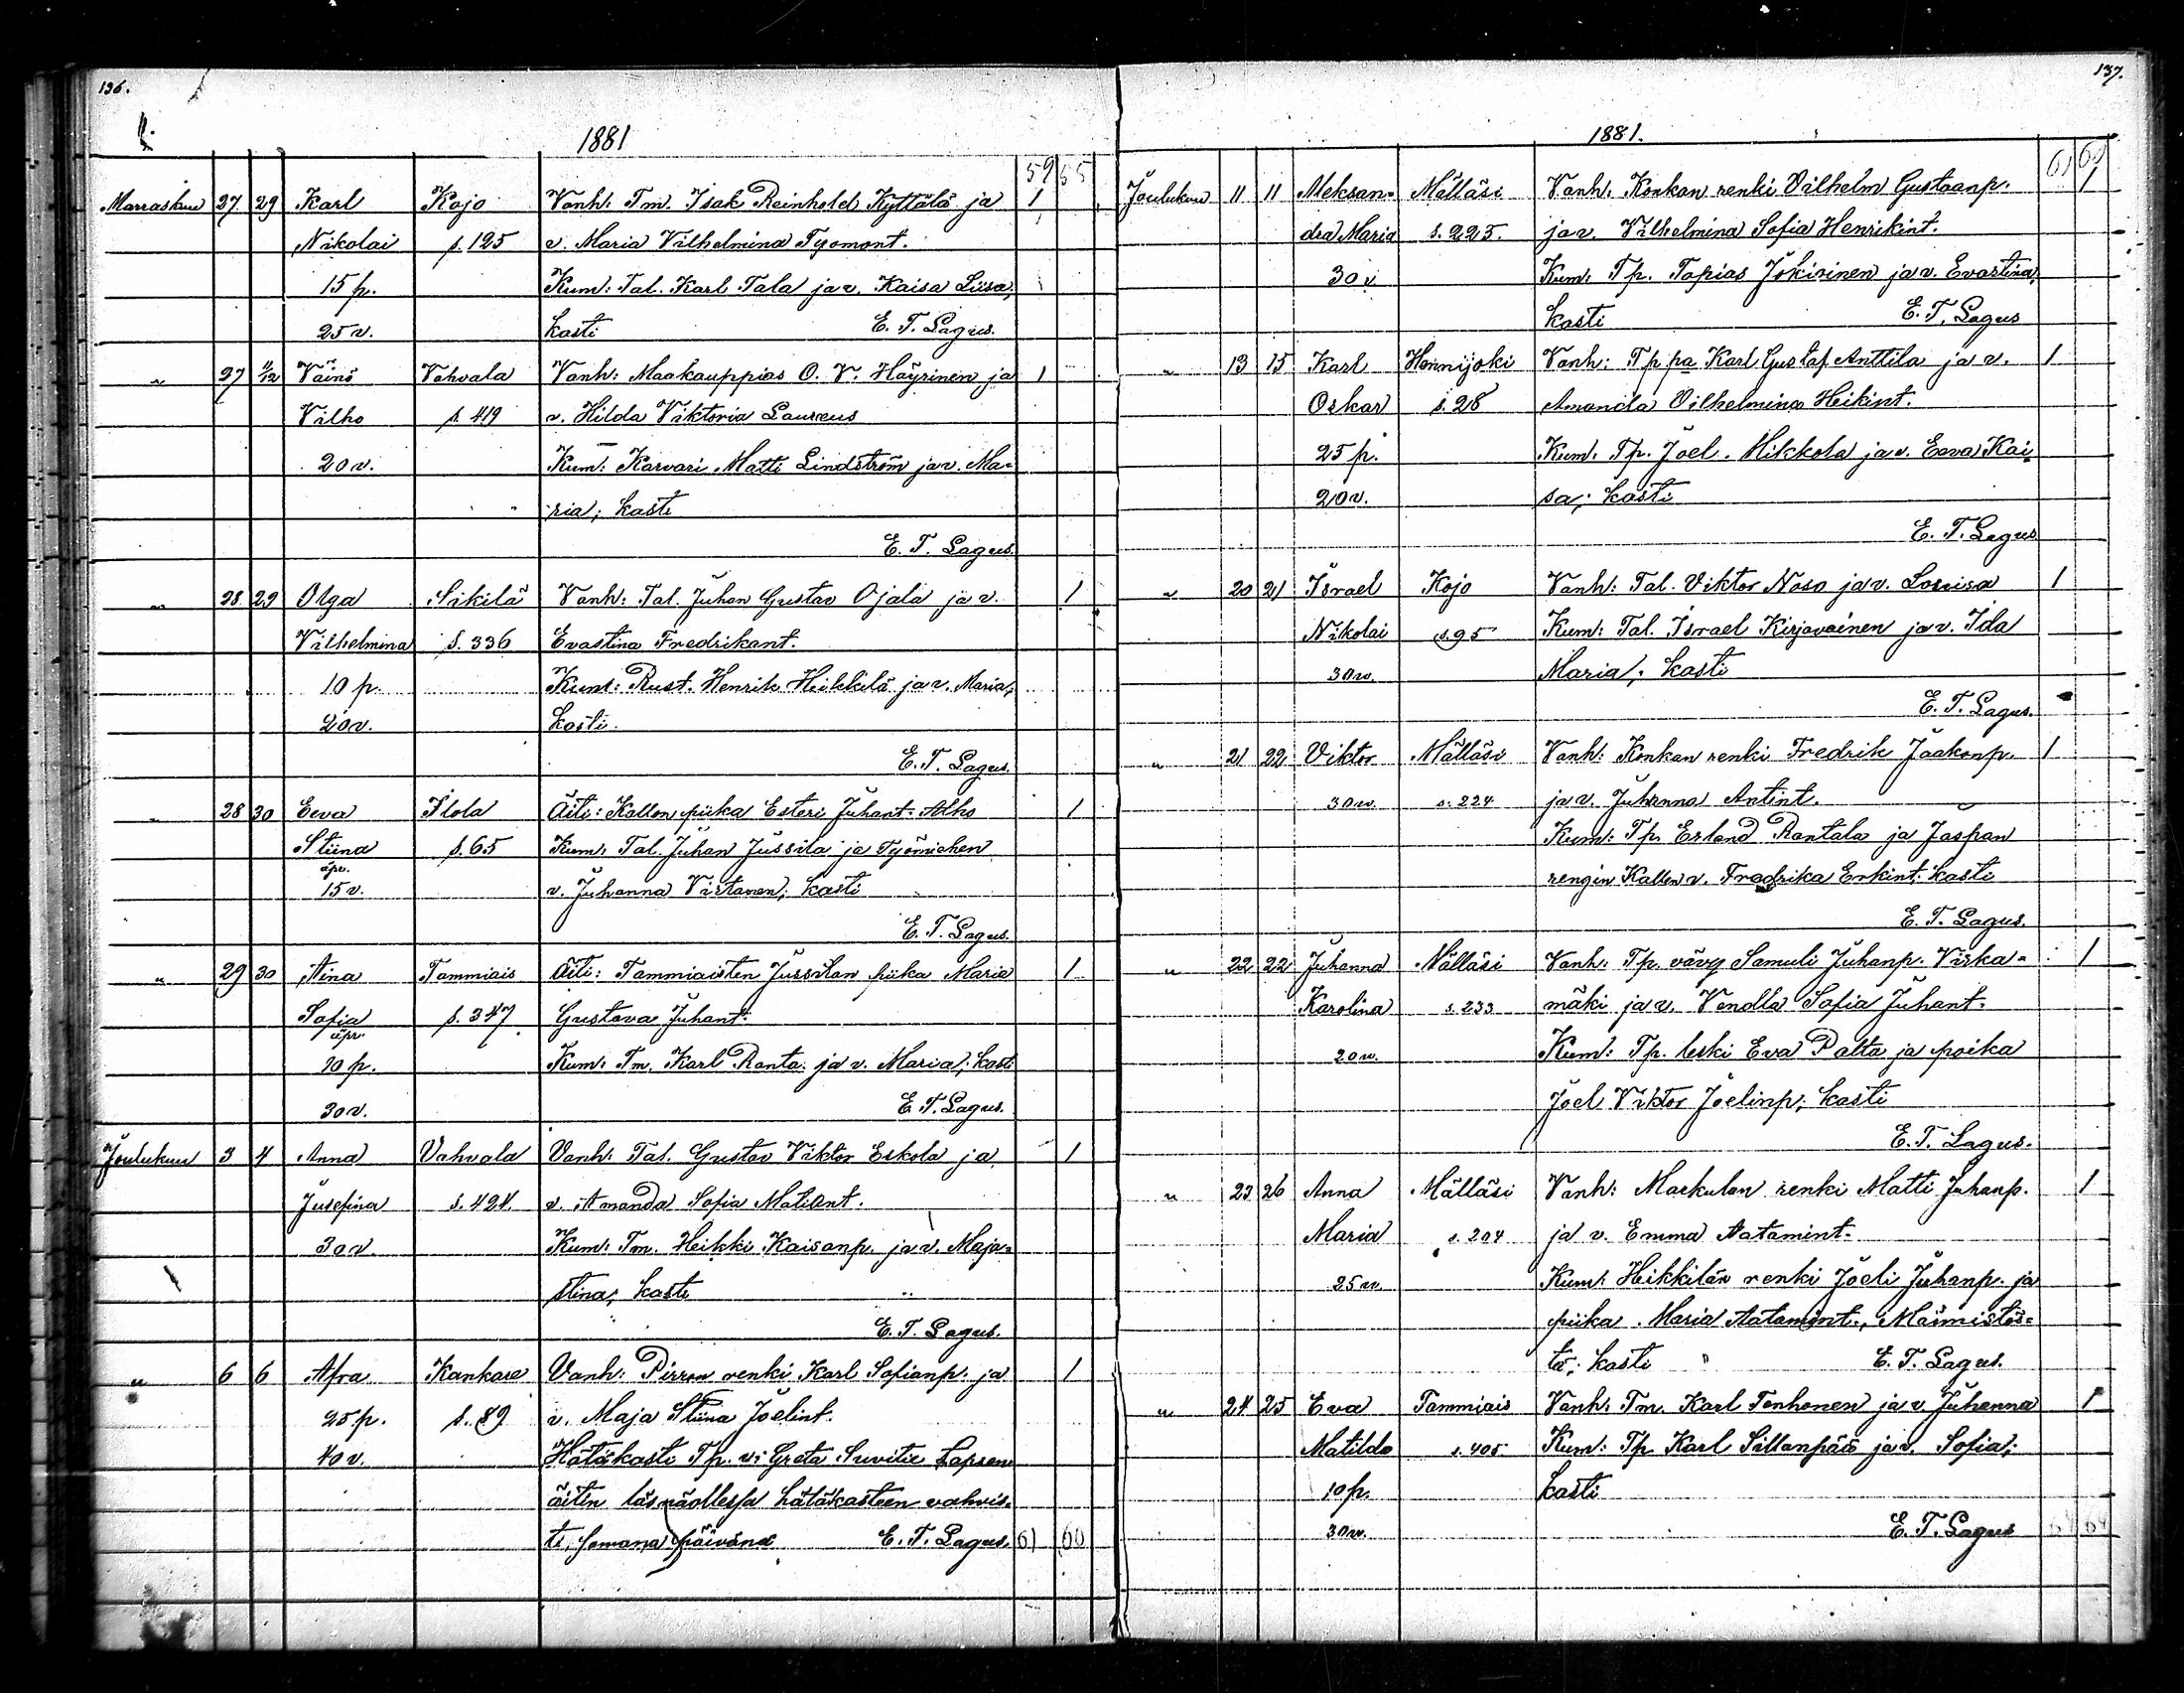 136.
1881
59 55
Marraskuu 27 29 Karl Kojo Vanh: Tm. Isak Reinhold Kyttälä ja 1
Nikolai s. 125 v. Maria Vilhelmina Tysmont.
15 p. Kum: Tal. Karl Tala ja v. Kaisa Liisa;
25 v. kasti E. T. Lagus.
" 27 11/12 Väinö Vahvala Vanh: Maakauppias O. V. Häyrinen ja 1
Vilho s. 419 v. Hilda Viktoria Laureus
20 v. Kum: Karvari Matti Lindström ja v. Ma=
ria; kasti
E. T. Lagus.
" 28 29 Olga Sikilä Vanh: Tal. Juhan Gustav Ojala ja v. 1
Vilhelmina s. 336 Evastina Fredrikant.
10 p. Kum: Rust. Henrik Heikkilä ja v. Maria;
20 v. kasti.
E. T. Lagus.
" 28 30 Eeva Ilola Äiti: Kallon piika Esteri Juhant. Alho 1
Stiina s. 65 Kum: Tal. Juhan Jussila ja Työmiehen
äpr.
15 v. v. Juhanna Virtanen; kasti
E. T. Lagus.
" 29 30 Aina Tammiais Äiti: Tammiaisten Jussilan piika Maria 1
Sofia s. 347 Gustava Juhant.
äpr.
20 p. Kum: Tm. Karl Ranta ja v. Maria; kasti
30 v. E. T. Lagus.
Joulukuu 3 4 Anna Vahvala Vanh: Tal. Gustav Viktor Eskola ja 1
Jusefina s. 424. v. Amanda Sofia Matilant.
30 v. Kum: Tm. Heikki Kaisanp. ja v. Maja=
stina; kasti
E. T. Lagus.
" 6 6 Afra Kankare Vanh: Pirron renki Karl Sofianp. ja 1
25 p. s. 89 v. Maja Stiina Joelint.
40 v. Hätäkasti Tp. v: Greta Suvitie Lapsen
äitin läsnäollessa hätäkasteen vahvis=
ti samana päivänä E. T. Lagus. 61 60
137.
1881.
61 60
Joulukuu 11 11 Aleksan= Mälläsi Vanh: Konkan renki Vilhelm Gustaanp. 1
dra Maria s. 225. ja v. Vilhelmina Sofia Henrikint.
30 v Kum: Tp. Topias Jokirinen ja v. Evastina;
kasti E. T. Lagus
" 13 15 Karl Hennijoki Vanh: Tp pa Karl Gustaf Anttila ja v. 1
Oskar s. 28 Amanda Vilhelmina Heikint.
25 p. Kum: Tp. Joel Mikkola ja v. Eeva Kai=
20 v. sa; kasti
E. T. Lagus
" 20 21 Israel Kojo Vanh: Tal. Viktor Noso ja v. Lovisa 1
Nikolai s. 95 Kum: Tal. Israel Kirjavainen ja v. Ida
30 v. Maria; kasti
E. T. Lagus.
" 21 22 Viktor Mälläsi Vanh: Konkan renki Fredrik Jaakonp. 1
30 v. s. 224 ja v. Juhanna Antint.
Kum: Tp. Erland Rantala ja Jaspan
rengin Kallen v. Fredrika Erkint. kasti
E. T. Lagus.
" 22 22 Juhanna Mälläsi Vanh: Tp. vävy Samuli Juhanp. Virka= 1
Karolina s. 233 mäki ja v. Vendla Sofia Juhant.
20 v. Kum: Tp. leski Eva Palta ja poika
Joel Viktor Joelinp; kasti
E. T. Lagus.
" 23 26 Anna Mälläsi Vanh: Markulan renki Matti Juhanp. 1
Maria s. 204 ja v. Emma Aatamint.
25 v. Kum: Heikkilän renki Joeli Juhanp. ja
piika Maria Aatamint., Männistös=
tä; kasti E. T. Lagus.
" 24 25 Eva Tammiais Vanh: Tm. Karl Tenhonen ja v. Juhanna 1
Matilda s. 405 Kum: Tp. Karl Sillanpää ja v. Sofia;
10 p. kasti
30 v. E. T. Lagus 64 64